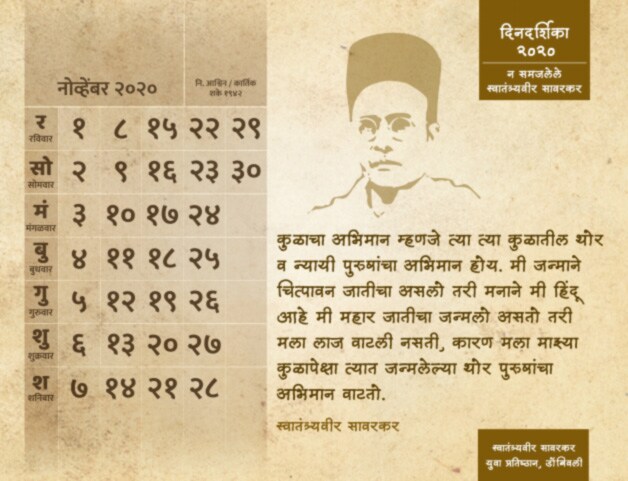 दिनदर्शिका
२०२०
न समजलेले
स्वातंत्र्यवीर सावरकर
नोव्हेंबर २०२०
नि. आश्विन / कार्तिक
शके १९४२
र १ ८ १५ २२ २९
रविवार
सो २ ९ १६ २३ ३०
सोमवार
मं ३ १० १७ २४
मंगळवार
बु ४ ११ १८ २५
बुधवार
गु ५ १२ १९ २६
गुरुवार
शु ६ १३ २० २७
शुक्रवार
श ७ १४ २१ २८
शनिवार
कुळाचा अभिमान म्हणजे त्या त्या कुळातील थोर
व न्यायी पुरुषांचा अभिमान होय. मी जन्माने
चित्पावन जातीचा असलो तरी मनाने मी हिंदू
आहे मी महार जातीचा जन्मलो असतो तरी
मला लाज वाटली नसती, कारण मला माझ्या
कुळापेक्षा त्यात जन्मलेल्या थोर पुरुषांचा
अभिमान वाटतो.
स्वातंत्र्यवीर सावरकर
स्वातंत्र्यवीर सावरकर
युवा प्रतिष्ठान, डोंबिवली